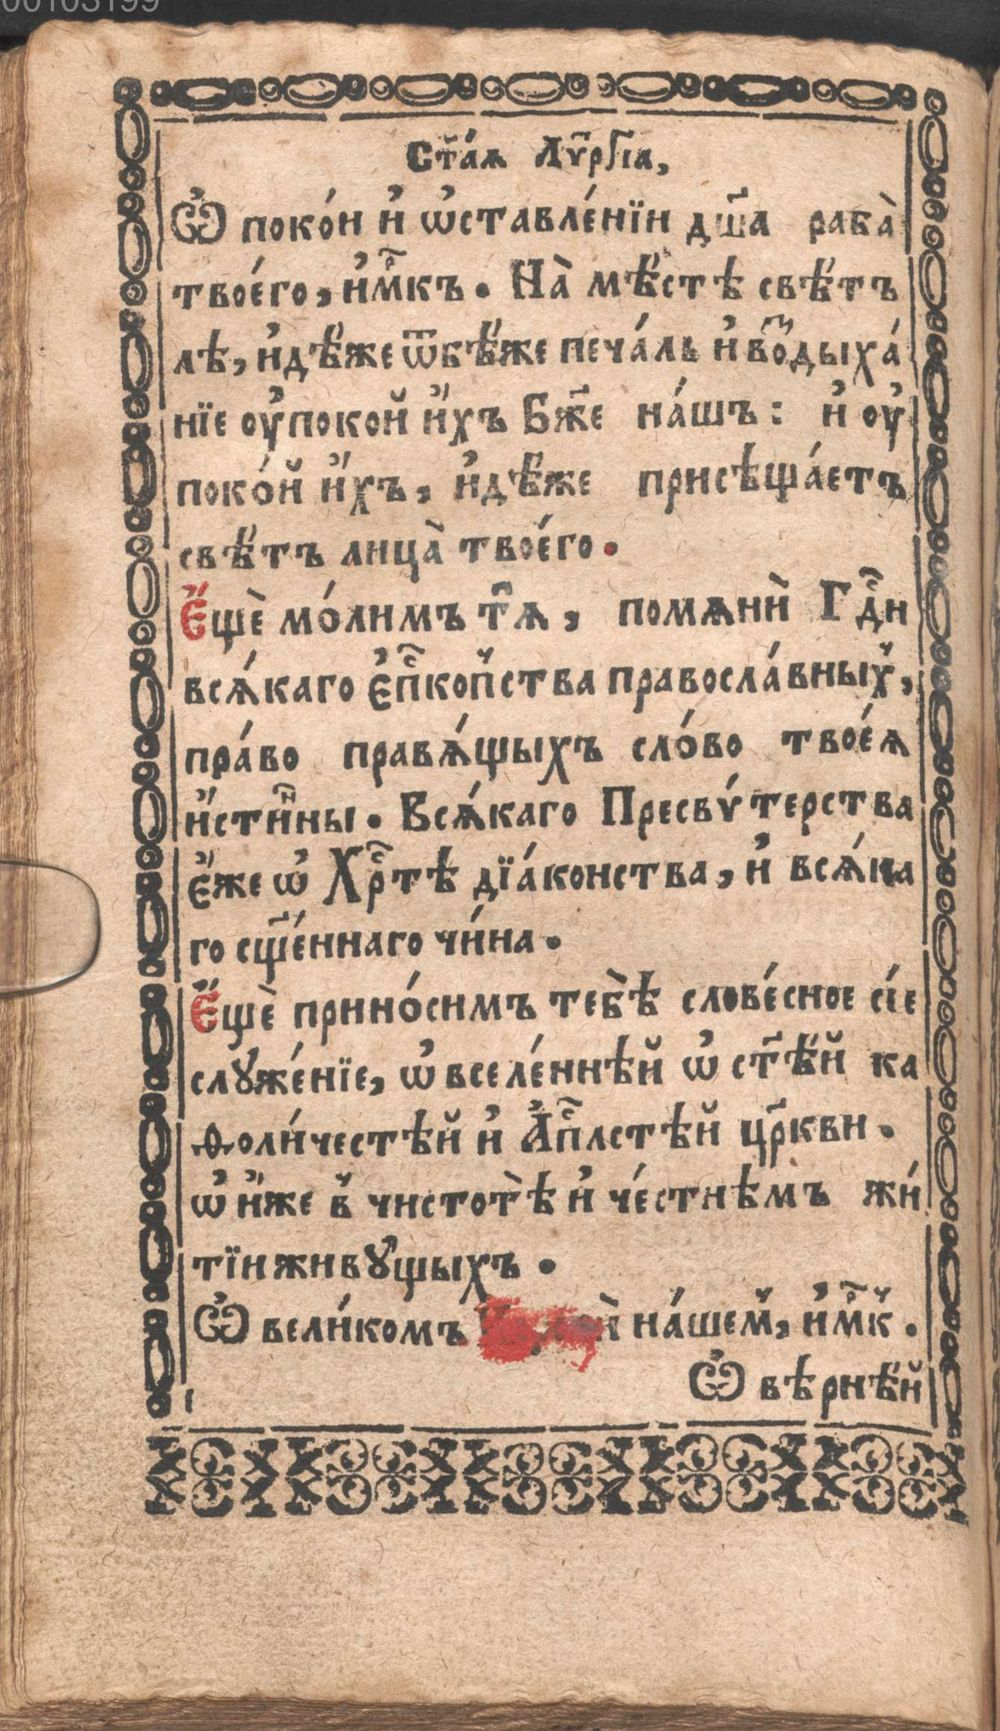 00103199
Ст҃а́ѧ Лꙋ҃ргі́а,
Ѽ поко́и и҆ ѡ҆ставле́нїи дш҃а раба̀
твоегѡ́, и҆мк҃ъ. На̀ мѣ́стѣ свѣ́тъ
лѣ, и҆дѣ́же ѿбѣ́же печа́ль и҆ во҃дыха́
нїе оу҆покой и҆́хъ Бж҃е на́шъ: и҆ оу҆
поко́й и҆́хъ, и҆дѣ́же присѣща́етъ
свѣ́тъ лица̀ твоего́.
Є҆щѐ мо́лимъ тѧ҃, помѧнѝ Гдⷭ҇и
всѧ́каго є҆пⷭ҇копства правосла́вных̾,
пра́во правѧ́щыхъ сло́во твоеѧ́
и҆́стинны. Всѧ́каго Пресвѵ́терства
є҆́же ѡ҆ Хрⷭ҇тѣ дїа́конства, и҆ всѧ́ка
го сщ҃е́ннаго чи́на.
Є҆щѐ прино́симъ тебѣ̀ слове́сное сі́е
слꙋже́нїе, ѡ҆ вселе́ннѣй ѡ҆ ст҃ѣ́й ка
ѳоли́честѣй и҆ А҆пⷭ҇лстѣй цр҃кви.
ѡ҆ и҆́же в̾ чистотѣ̀ и҆ че́стнѣмъ жи́
тїи живꙋ́щыхъ.
Ѽ вели́комъ на́шем̾, и҆мк҃.
Ѽ вѣрнѣ́й